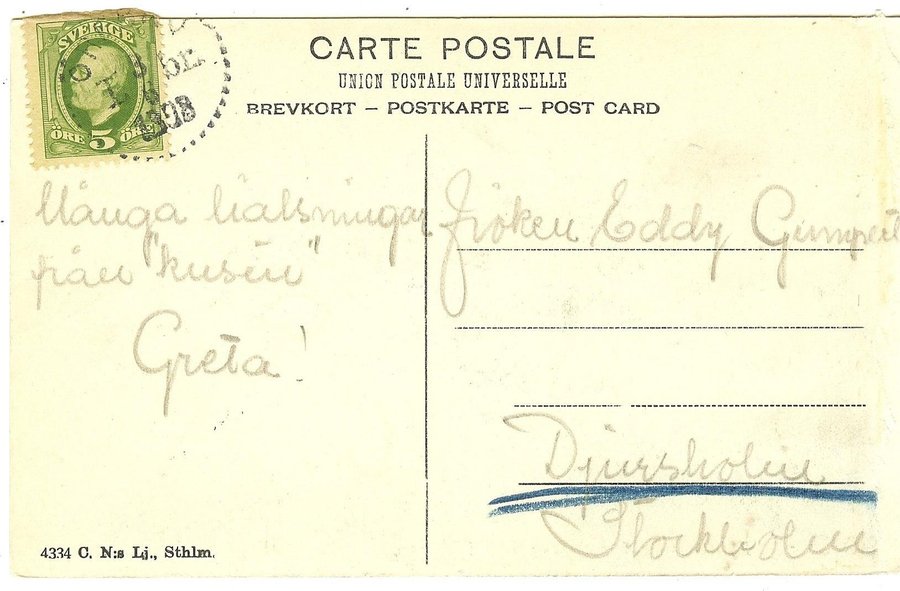 SVERIGE
ÖRE 5 ÖRE
1903
CARTE POSTALE
UNION POSTALE UNIVERSELLE
BREVKORT – POSTKARTE – POST CARD
Många hälsningar
från "kusin"
Greta!
Fröken Eddy
Djursholm
Stockholm
4334 C. N:s Lj., Sthlm.